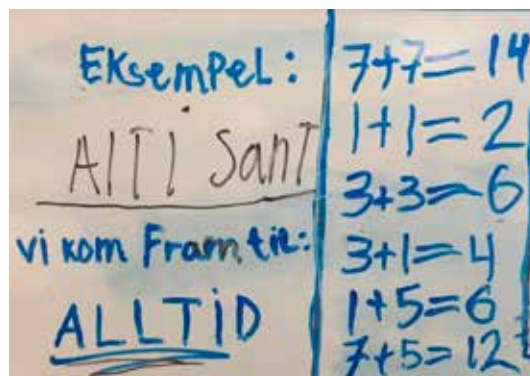 EKsEmpEL:
AlTi SanT
vi kom Fram til:
ALLTiD
7+7=14
1+1=2
3+3=6
3+1=4
1+5=6
7+5=12